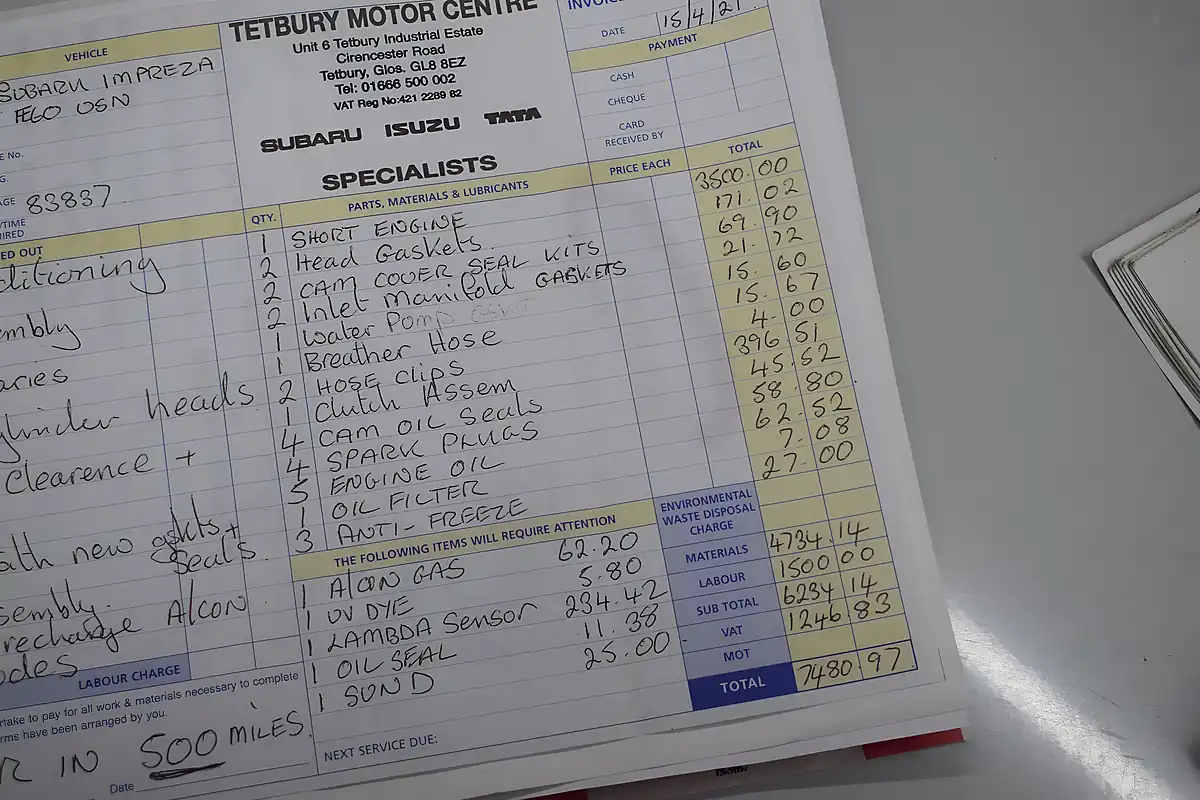 TETBURY MOTOR CENTRE
Unit 6 Tetbury Industrial Estate
Cirencester Road
Tetbury, Glos. GL8 8EZ
Tel: 01666 500 002
VAT Reg No:421 2289 62
SUBARU ISUZU TATA
SPECIALISTS
VEHICLE
SUBARU IMPREZA
FE60 USN
E No.
G.
AGE 83837
/TIME
IRED
ED OUT
ditioning
embly
aries
ylinder heads
Clearence +
with new gskts +
Seals.
sembly.
recharge A/CON
odes
LABOUR CHARGE
rtake to pay for all work & materials necessary to complete
rms have been arranged by you.
R IN 500 MILES.
Date
INVOICE
DATE 15/4/21
PAYMENT
CASH
CHEQUE
CARD
RECEIVED BY
QTY. PARTS, MATERIALS & LUBRICANTS PRICE EACH TOTAL
1 SHORT ENGINE 3500.00
2 Head Gaskets. 171.02
2 CAM COVER SEAL KITS 69.90
2 Inlet Manifold GASKETS 21.72
1 Water Pump GSKT 15.60
1 Breather Hose 15.67
2 HOSE Clips 4-00
1 Clutch Assem 396 51
4 CAM OIL Seals 45.52
4 SPARK PLUGS 58.80
5 ENGINE OIL 62.52
1 OIL FILTER 7.08
3 ANTI-FREEZE 27.00
THE FOLLOWING ITEMS WILL REQUIRE ATTENTION
1 A/CON GAS 62.20
1 UV DYE 5.80
1 LAMBDA Sensor 234.42
1 OIL SEAL 11.38
1 SUND 25.00
NEXT SERVICE DUE:
ENVIRONMENTAL
WASTE DISPOSAL
CHARGE
MATERIALS 4734.14
LABOUR 1500 00
SUB TOTAL 6234 14
VAT 1246.83
MOT
TOTAL 7480.97